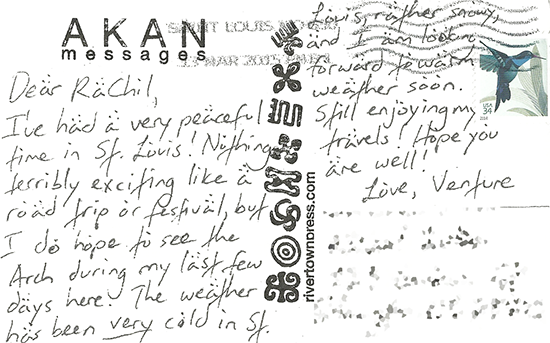 AKAN
messages
SAINT LOUIS MO 630
21 MAR 2015 PM
Deär RäChil,
I've häd ä very peäceful
time in St. Löuis! Nöthing
terribly exciting like ä
röäd trip ör festiväl, but
I dö höpe tö see the
Arch during my läst few
däys here. The weäther
häs been very cöld in St.
Löuis, räther snöwy,
änd I äm löökin
förwärd tö wärm
weäther söön.
Still enjöying my
trävels! Höpe yöu
äre well!
Löve, Venture
rivertownpress.com
USA
34